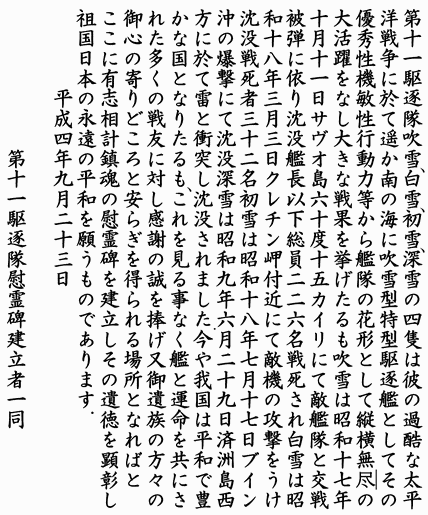 第十一駆逐隊吹雪、白雪、初雪、深雪の四隻は彼の過酷な太平
洋戦争に於て遥か南の海に吹雪型特型駆逐艦としてその
優秀性機敏性行動力等から艦隊の花形として縦横無尽の
大活躍をなし大きな戦果を挙げたるも吹雪は昭和十七年
十月十一日サヴオ島六十度十五カイリにて敵艦隊と交戦
被弾に依り沈没艦長以下総員二二六名戦死され白雪は昭
和十八年三月三日クレチン岬付近にて敵機の攻撃をうけ
沈没戦死者三十二名初雪は昭和十八年七月十七日ブイン
沖の爆撃にて沈没深雪は昭和九年六月二十九日済洲島西
方に於て雷と衝突し沈没されました今や我国は平和で豊
かな国となりたるも、これを見る事なく艦と運命を共にさ
れた多くの戦友に対し感謝の誠を捧げ又御遺族の方々の
御心の寄りどころと安らぎを得られる場所となればと
ここに有志相計鎮魂の慰霊碑を建立しその遺徳を顕彰し
祖国日本の永遠の平和を願うものであります.
平成四年九月二十三日
第十一駆逐隊慰霊碑建立者一同